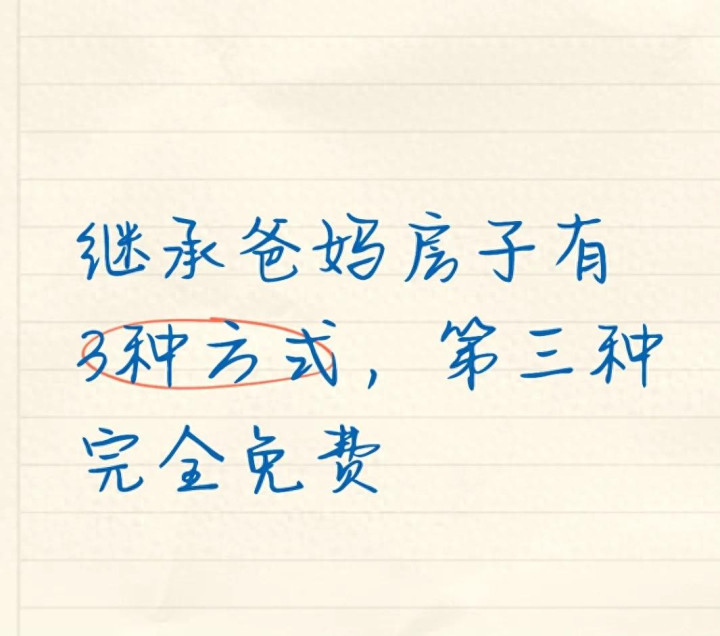 继承爸妈房子有
3种方式，第三种
完全免费